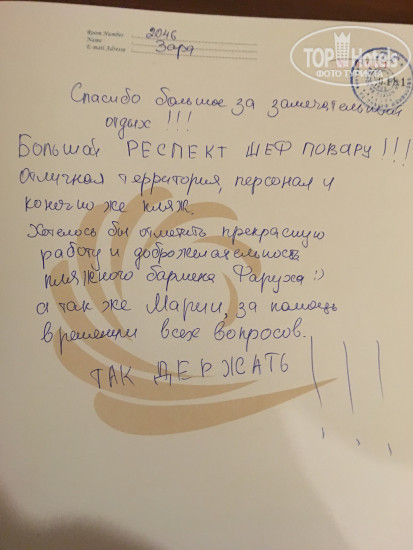 Room Number 2046
Name Зара
E-mail Adress
TOP Hotels
ФОТО ТУРИСТА
Спасибо большое за замечательный
отдых !!!
БОЛЬШОЙ РЕСПЕКТ ШЕФ ПОВАРУ!!!
Отличная территория, персонал и
конечно же пляж.
Хотелось бы отметить прекрасную
работу и доброжелательность
пляжного бармена Фаруха :)
а так же Марии, за помощь
в решении всех вопросов.
ТАК ДЕРЖАТЬ !!!